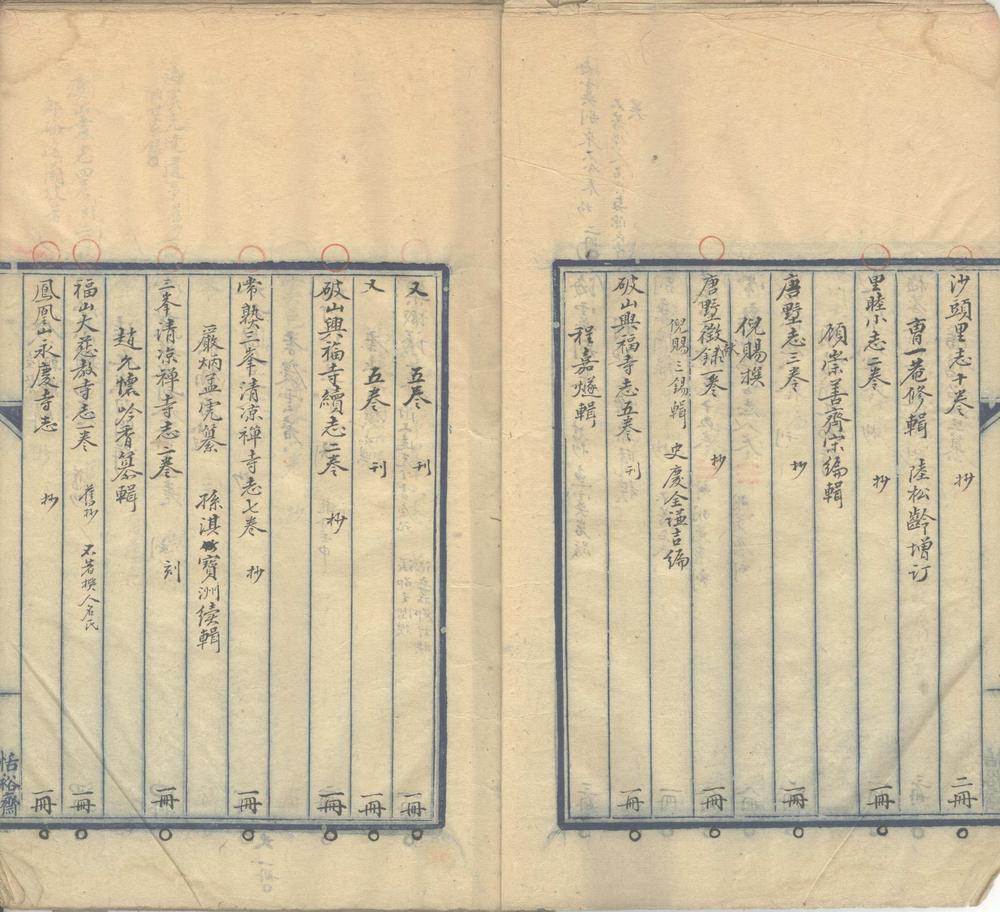 沙頭里志十卷 抄 二冊
曹一菴修輯 陸松齡增订
里睦小志二卷 抄 一冊
顧崇善齊宗编輯
唐墅志三卷 抄 二冊
倪賜撰
唐墅徵献録一卷 抄 一冊
倪賜三錫輯 史慶全谦吉编
破山興福寺志五卷 刊 一冊
程嘉燧輯
又 五卷 刊 一冊
又 五卷 刊 一冊
破山興福寺續志二卷 抄 一冊
常熟三峯清凉禅寺志七卷 抄 一冊
嚴炳孟虎纂 孫淇寶洲續輯
三峯清凉禅寺志二卷 刻 一冊
趙允懷吟香纂輯
福山大慈教寺志一卷 舊抄 不著撰人名氏 一冊
鳳凰山永慶寺志 抄 一冊
恬裕齋